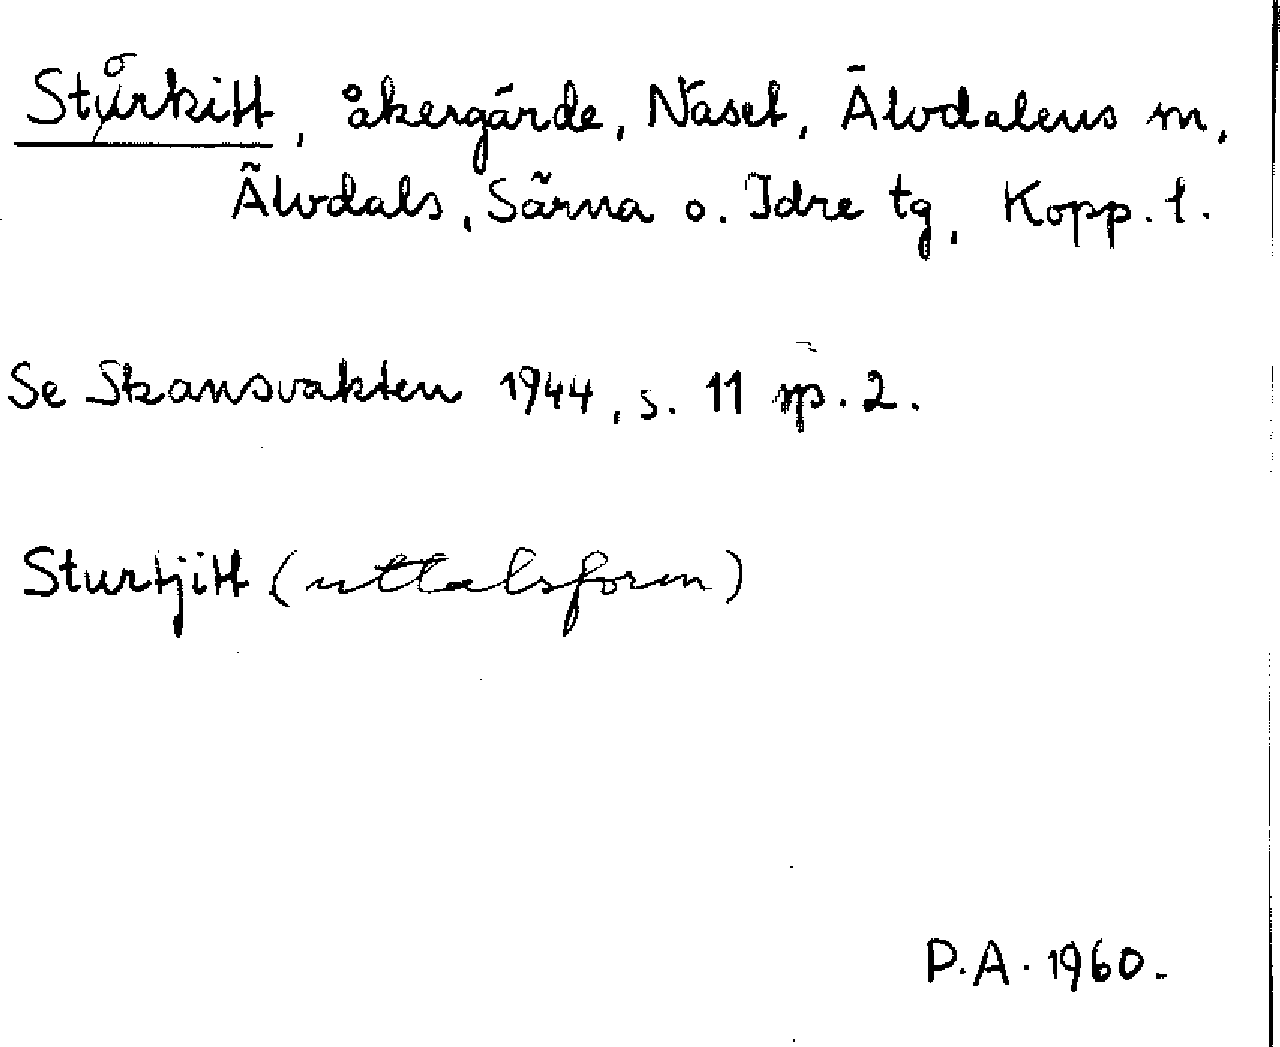 Storkitt, åkergärde, Näset, Älvdalens m,
Älvdals, Särna o. Idre tg, Kopp. l.
Se Skansvakten 1944, s. 11 sp. 2.
Sturtjitt (uttalsform)
P.A. 1960.